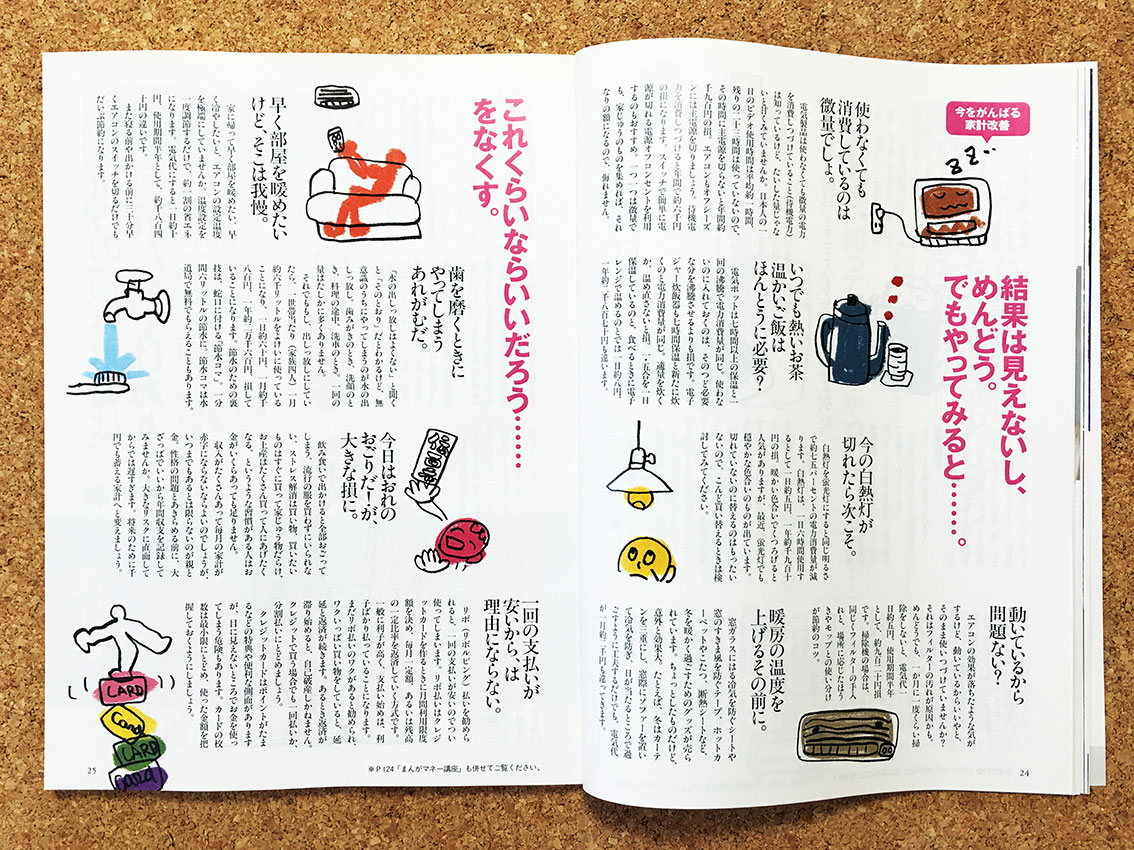 今をがんばる
家計改善
結果は見えないし、
めんどう。
でもやってみると……。
使わなくても
消費しているのは
微量でしょ。
電気製品は使わなくても微量の電力
を消費しつづけていること（待機電力）
は知っているけど、たいした量じゃな
いと甘くみていませんか。日本人の一
日のビデオ使用時間は平均約一時間、
残りの二十三時間は使っていないので、
その時間に主電源を切らないと年間約
千九百円の損。エアコンもオフシーズ
ンには主電源を切りましょう。待機電
力を消費しつづけると年間で約六千円
の損になります。スイッチで簡単に電
源が切れる電源オフコンセントを利用
するのもおすすめ。一つ一つは微量で
も、家じゅうのものを集めれば、それ
なりの額になるので、侮れません。
いつでも熱いお茶
温かいご飯は
ほんとうに必要？
電気ポットは七時間以上の保温と一
回の沸騰で電力消費量が同じ。使わな
いのに入れておくのは、そのつど必要
な分を沸騰させるよりも損です。電子
ジャー炊飯器も七時間保温と新たに炊
くのと電力消費量が同じ。適量を炊く
か、温め直さないと損。二・五合を一日
保温しているのと、食べるときに電子
レンジで温めるのとでは一日約八円、
一年約二千八百七十円も違います。
今の白熱灯が
切れたら次こそ。
白熱灯を蛍光灯にすると同じ明るさ
で約七五パーセントの電力消費量が減
ります。白熱灯は、一日六時間使用す
るとして一日約五円、一年約千九百十
円の損。暖かい色合いでくつろげると
人気がありますが、最近、蛍光灯でも
穏やかな色合いのものが出ています。
切れていないのに替えるのはもったい
ないので、こんど買い替えるときは検
討してみてください。
動いているから
問題ない？
エアコンの効果が落ちたような気が
するけど、動いているからいいやと、
そのまま使いつづけていませんか？
それはフィルターの汚れが原因かも。
めんどうでも、一か月に一度くらい掃
除をしないと、電気代一
日約五円、使用期間半年
として、約九百二十円損
です。掃除機の場合は、
同じくフィルターの手入
れと、場所に応じたほう
きやモップとの使い分け
が節約のコツ。
暖房の温度を
上げるその前に。
窓ガラスには冷気を防ぐシートや
窓のすきま風を防ぐテープ、ホットカ
ーペットやこたつ、断熱シートなど、
冬を暖かく過ごすためのグッズが売ら
れています。ちょっとしたものだけど、
意外と効果大。たとえば、冬はカーテ
ンを二重にし、窓際にソファーを置い
て冷気を防ぎ、日が当たるところで過
ごすように工夫するだけでも、電気代
が一日約二千円も違ってきます。
24
これくらいならいいだろう……
をなくす。
早く部屋を暖めたい
けど、そこは我慢。
家に帰って早く部屋を暖めたい、早
く冷やしたいと、エアコンの設定温度
を極端にしていませんか。温度設定を
一度調節するだけで、約一割の省エネ
になります。電気代にすると一日約十
円、使用期間半年として、約千八百四
十円の違いです。
また寝る前や出かける前に二十分早
くエアコンのスイッチを切るだけでも
だいぶ節約になります。
歯を磨くときに
やってしまう
あれがむだ。
「水の出しっ放しはよくない」と聞く
と「そのとおり」だとわかるけど、無
意識のうちにやってしまうのが水の出
しっ放し。歯みがきのとき、洗顔のと
き、料理の途中、洗車のとき、一回の
量はたしかに多くありません。
それでももし、出しっ放しにしてい
たら、一世帯当たり（家族四人）一月
約六千リットルをよけいに使っている
ことになり、一日約六十円、一月約千
八百円、一年約二万千六百円、損して
いることになります。節水のための裏
技は、蛇口に付ける「節水コマ」。一分
間六リットルの節水に。節水コマは水
道局で無料でもらえることもあります。
今日はおれの
おごりだーが、
大きな損に。
飲み食いで出かけると全部おごって
しまう、流行の服を買わずにいられな
い、ストレス解消は買い物、買いたい
ものはすぐに買って家じゅう物だらけ、
お土産はたくさん買って人にあげたく
なる、というような習慣がある人はお
金がいくらあっても足りません。
収入がたくさんあって毎月の家計が
赤字にならないならよいのでしょうが、
いつまでもあるとは限らないのが親と
金。性格の問題とあきらめる前に、大
ざっぱでいいから年間収支を記録して
みませんか。大きなリスクに直面して
からでは遅すぎます。将来のために千
円でも蓄える家計へと変えましょう。
一回の支払いが
安いから、は
理由にならない。
リボ（リボルビング）払いを勧めら
れると、一回の支払いが安いのでつい
使ってしまいます。リボ払いはクレジ
ットカードを作るときに月間利用限度
額を決め、毎月一定額、あるいは残高
の一定比率を返済していく方式です。
一般に利子が高く、支払い始めは、利
子ばかり払っていることになります。
まだリボ払いのワクがあると勧められ、
ワクいっぱい買い物をしていると、延
延と返済が続きます。あるとき返済が
滞り始めると、自己破産しかねません。
クレジットで買う場合でも一回払いか、
分割払いにとどめましょう。
クレジットカードはポイントがたま
るなどの特典や便利な側面があります
が、目に見えないところでお金を使っ
てしまう危険もあります。カードの枚
数は最小限にとどめ、使った金額を把
握しておくようにしましょう。
CARD
Card
CARD
Card
※P124「まんがマネー講座」も併せてご覧ください。
25